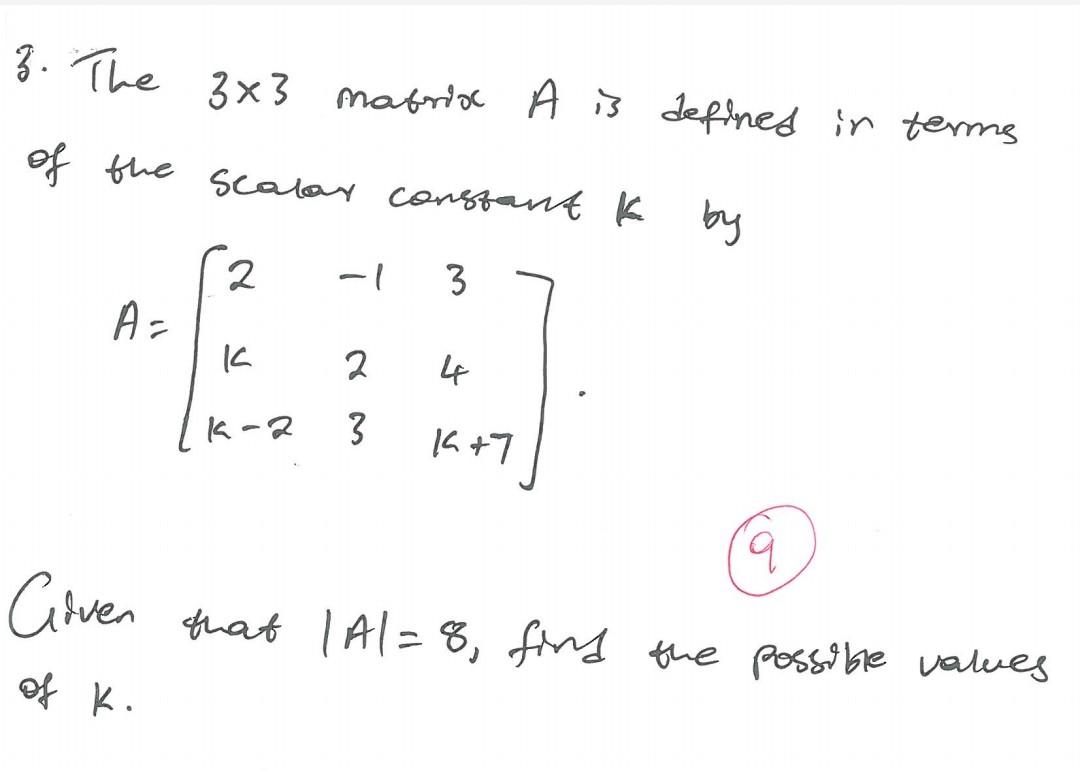 3. The 3×3 matrix A is defined in terms
of the scalar constant k by
A = [2 -1 3
k 2 4
k-2 3 k+7].
9
Given that |A| = 8, find the possible values
of k.